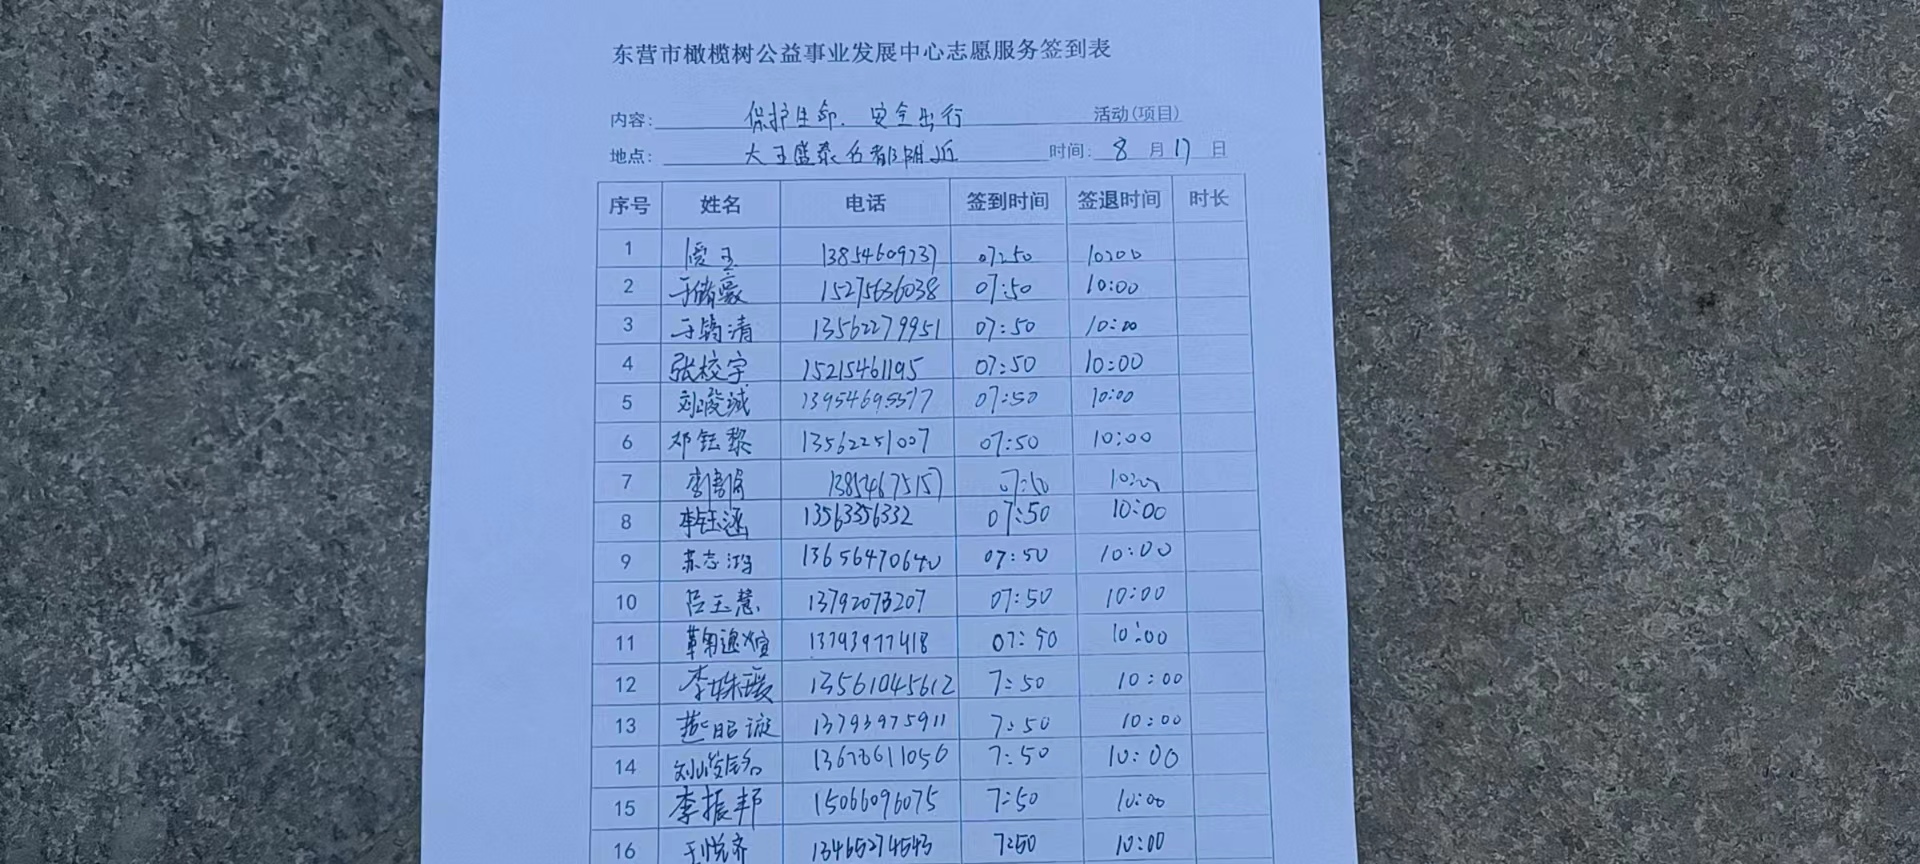 东营市橄榄树公益事业发展中心志愿服务签到表
内容: 保护生命、安全出行 活动(项目)
地点: 大王盛泰名都附近 时间: 8 月 17 日
序号 姓名 电话 签到时间 签退时间 时长
1 13854609237 07:50 10:00
2 于储豪 15275636038 07:50 10:00
3 于钧清 13562279951 07:50 10:00
4 张校宇 15215461195 07:50 10:00
5 刘峻诚 13954695577 07:50 10:00
6 邓钰黎 13562251007 07:50 10:00
7 13854675157 07:50 10:00
8 李钰涵 13563356332 07:50 10:00
9 苏志鸿 13656470640 07:50 10:00
10 吕玉慧 13792073207 07:50 10:00
11 13793977418 07:50 10:00
12 李姝瑗 13561045612 7:50 10:00
13 13793975911 7:50 10:00
14 7:50 10:00
15 李振邦 15066096075 7:50 10:00
16 于悦齐 13465274543 7:50 10:00